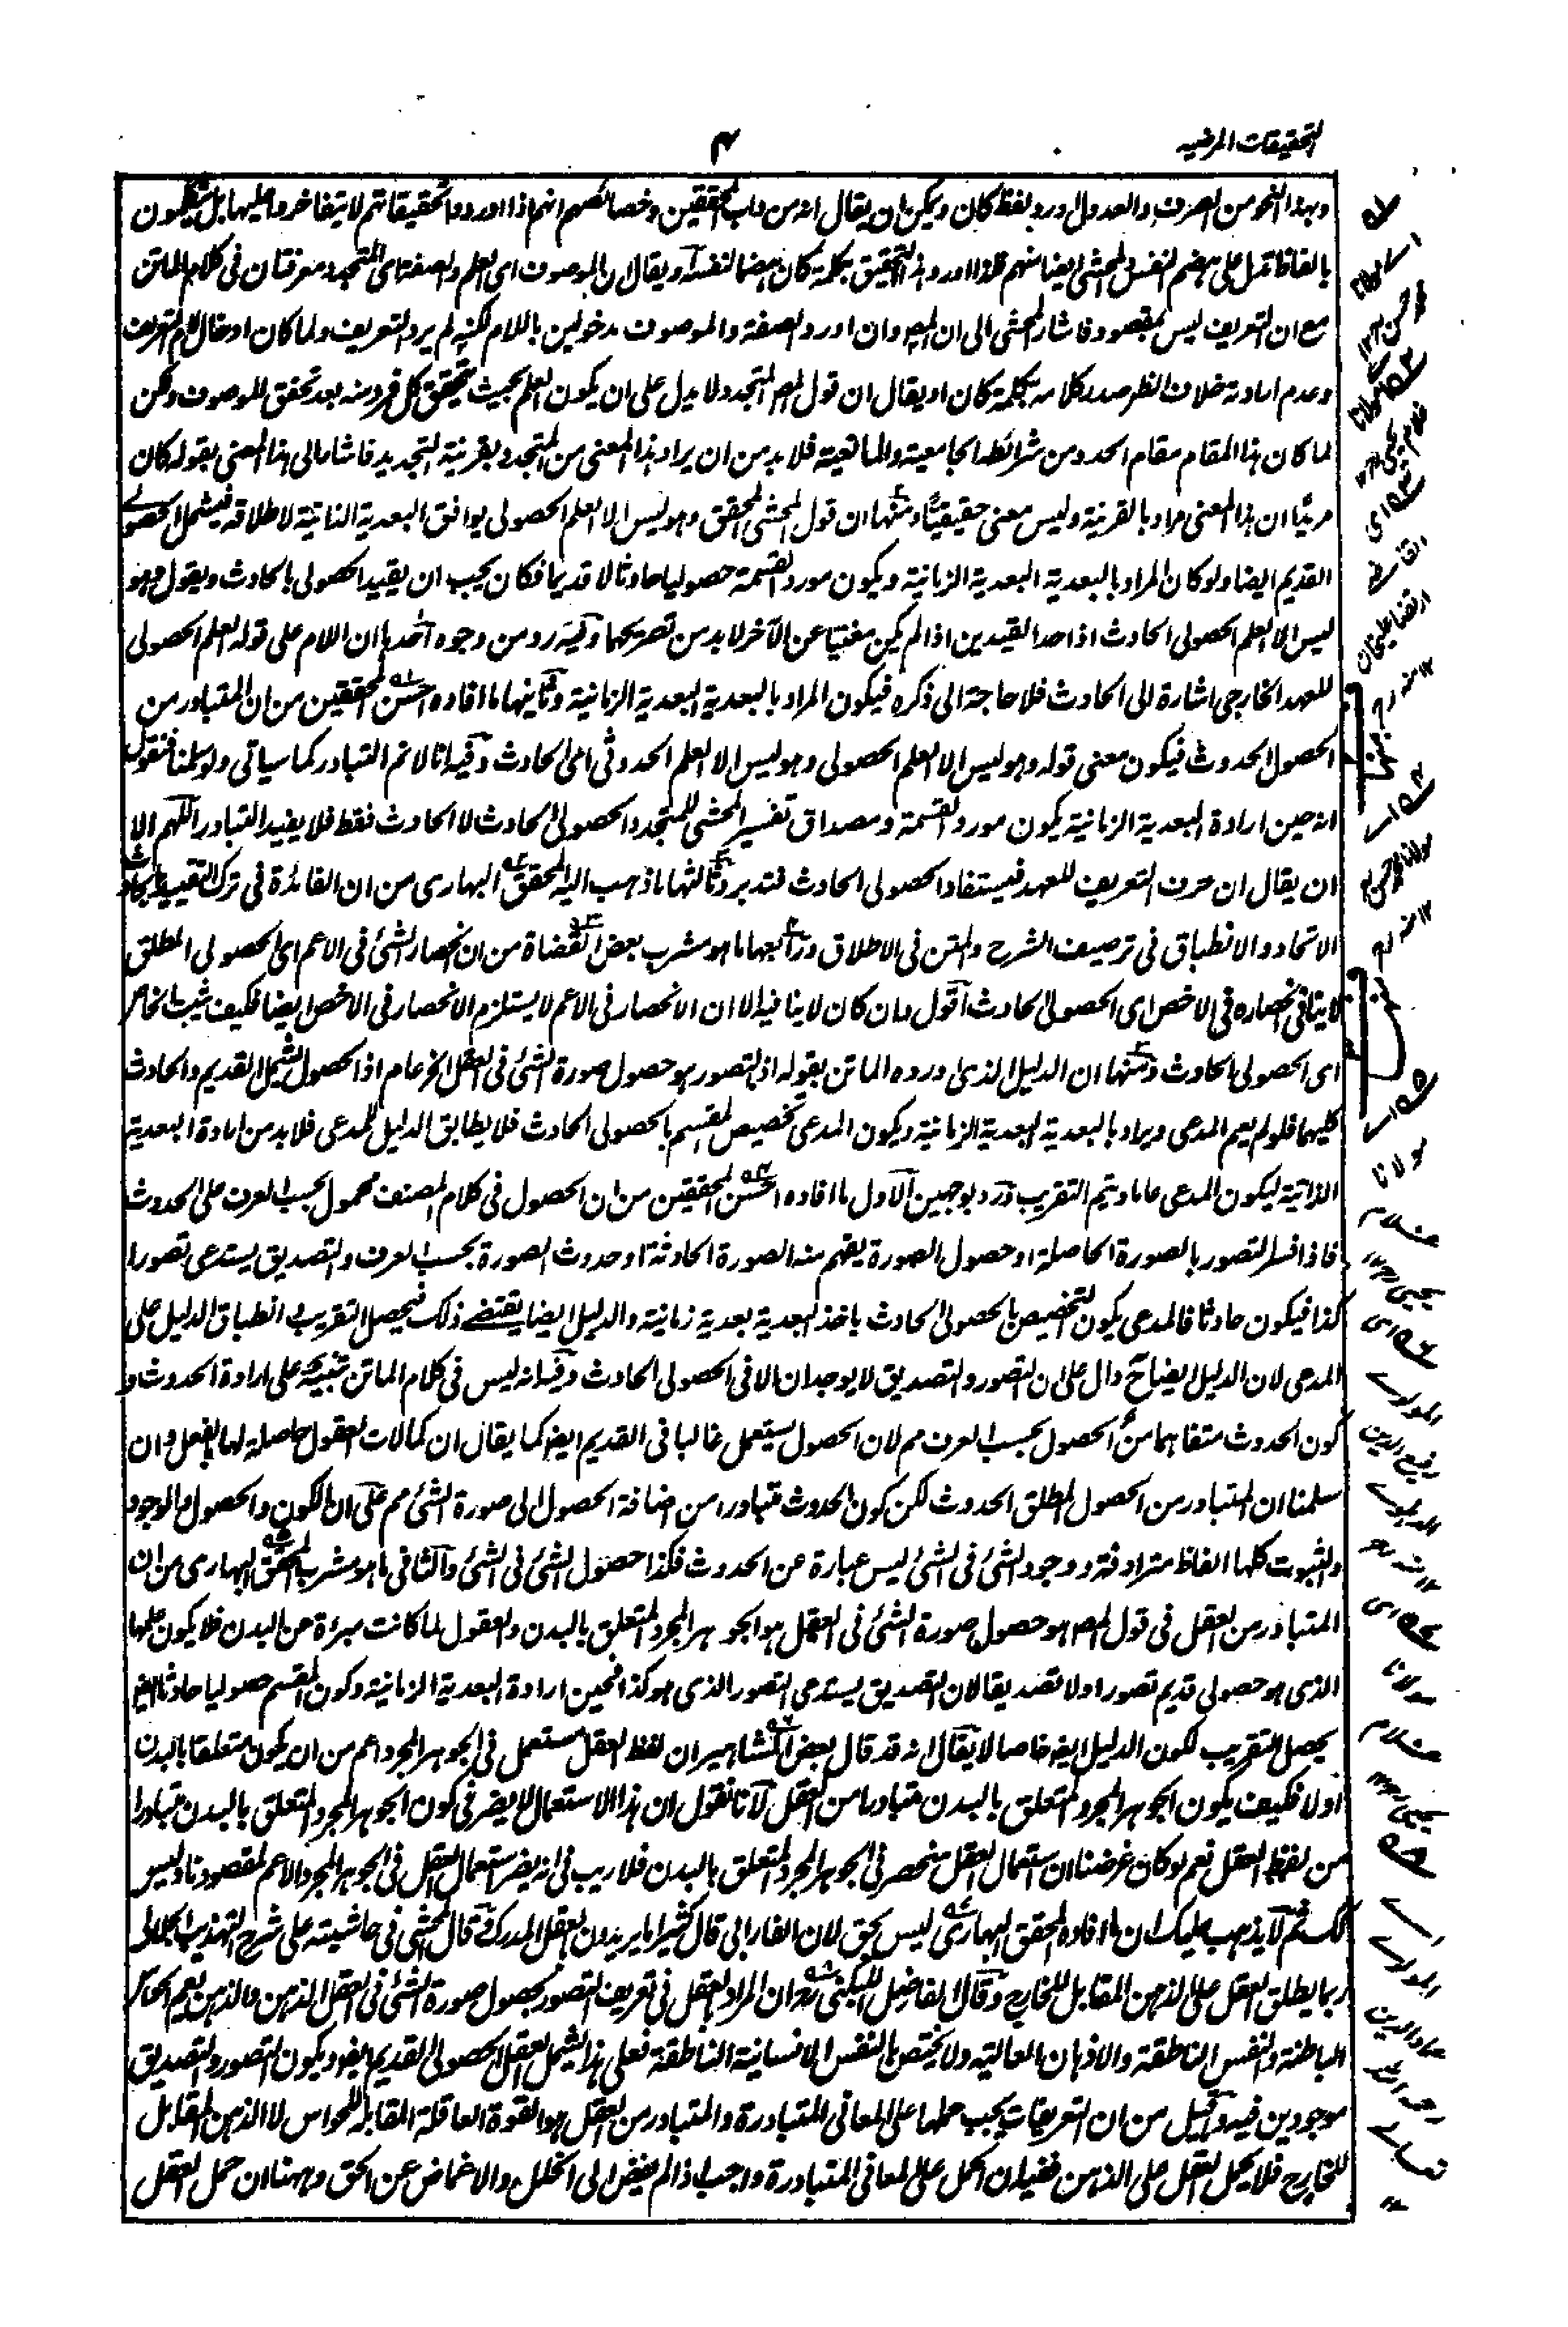 التحقيقات المرضيه
٤
وبهذا النحو من الصرف والعدول ورد بلفظ كان ويمكن ان يقال انه من داب المحققين وخصائلهم انهم اذا اوردوا تحقيقاتهم لا يتفاخروا عليها بل يتكلمون
بالفاظ تدل على هضم النفس والمحشى ايضا منهم فلذا اورد هذا التحقيق بكلمة كان هضما لنفسه ويقال ان الموصوف اى العلم والصفة اى المتجدد معرفتان فى كلام الماتن
مع ان التعريف ليس بمقصود فاشار المحشى الى ان المص وان اورد الصفة والموصوف مدخولين باللام لكنه لم يرد التعريف ولما كان ادخال لام التعريف
وعدم ارادته خلاف الظهر صدر كلامه بكلمة كان او يقال ان قول المص المتجدد لا يدل على ان يكون العلم بحيث يتحقق كل فرد منه بعد تحقق الموصوف ولكن
لما كان هذا المقام مقام الحد ومن شرائطه الجامعية والمانعية فلا بد من ان يراد هذا المعنى من المتجدد بقرينة التجديد فاشار الى هذا المعنى بقوله كان
مريئا ان هذا المعنى مراد بالقرينة وليس معنى حقيقيا ومنها ان قول المحشى المحقق وهو ليس الا العلم الحصولى يوافق البعدية الذاتية لاطلاقه فيشمل الحصولى
القديم ايضا ولو كان المراد بالبعدية البعدية الزمانية ويكون مورد القسمة حصوليا حادثا لا قديما فكان يجب ان يقيد الحصولى بالحادث ويقول وهو
ليس الا العلم الحصولى الحادث اذ احد القيدين اذا لم يكن مغنيا عن الآخر لا بد من تصريحهما وفيه رد من وجوه احدها ان اللام على قوله العلم الحصولى
للعهد الخارجى اشارة الى الحادث فلا حاجة الى ذكره فيكون المراد بالبعدية البعدية الزمانية وثانيها ما افاده احسن المحققين من ان المتبادر من
الحصول الحدوث فيكون معنى قوله وهو ليس الا العلم الحصولى وهو ليس الا العلم الحدوثى اى الحادث وفيه انا لا نم التبادر كما سياتى ولو سلمنا فنقول
انه حين ارادة البعدية الزمانية يكون مورد القسمة ومصداق تفسير المحشى للمتجدد الحصولى الحادث لا الحادث فقط فلا يفيد التبادر اللهم الا
ان يقال ان حرف التعريف للعهد فيستفاد الحصولى الحادث فتدبر وثالثها ما ذهب اليه المحقق البهارى من ان الفائدة فى ترك التقييد بالحادث
الاتحاد والانطباق فى توصيف الشرح والمتن فى الاطلاق ورابعها ما هو مشرب بعض القضاة من ان انحصار الشئ فى الاعم اى الحصولى المطلق
لا ينافى انحصاره فى الاخص اى الحصولى الحادث اقول وان كان لا ينافيه الا ان الانحصار فى الاعم لا يستلزم الانحصار فى الاخص ايضا فكيف يثبت الخاص
اى الحصولى الحادث ومنها ان الدليل الذى اورده الماتن بقوله اذ التصور هو حصول صورة الشئ فى العقل الخ عام اذ الحصول يشمل القديم والحادث
كليهما فلو لم يعم المدعى ويراد بالبعدية البعدية الزمانية ويكون المدعى تخصيص المقسم بالحصولى الحادث فلا يطابق الدليل للمدعى فلا بد من ارادة البعدية
الذاتية ليكون المدعى عاما ويتم التقريب ورد بوجهين الاول ما افاده احسن المحققين من ان الحصول فى كلام المصنف محمول بحسب العرف على الحدوث
فاذا فسر التصور بالصورة الحاصلة او حصول الصورة يفهم منه الصورة الحادثة او حدوث الصورة بحسب العرف والتصديق يستدعى تصورا
كذا فيكون حادثا فالمدعى يكون التخصيص بالحصولى الحادث باخذ البعدية بعدية زمانية والدليل ايضا يقتضى ذلك فيحصل التقريب اى انطباق الدليل على
المدعى لان الدليل ايضا ح دال على ان التصور والتصديق لا يوجدان الا فى الحصولى الحادث وفيه انه ليس فى كلام الماتن تنبيه على ارادة الحدوث و
كون الحدوث متفاهما من الحصول بحسب العرف مم لان الحصول يستعمل غالبا فى القديم ايضا كما يقال ان كمالات العقول حاصلة لها بالفعل وان
سلمنا ان المتبادر من الحصول المطلق الحدوث لكن كون الحدوث متبادرا من اضافة الحصول الى صورة الشئ مم على ان الكون والحصول والوجود
والثبوت كلها الفاظ مترادفة ووجود الشئ فى الشئ ليس عبارة عن الحدوث فكذا حصول الشئ فى الشئ والثانى ما هو مشرب المحقق البهارى من ان
المتبادر من العقل فى قول المص هو حصول صورة الشئ فى العقل هو الجوهر المجرد المتعلق بالبدن والعقول لما كانت مبرءة عن البدن فلا يكون علمها
الذى هو حصولى قديم تصورا ولا تصديقا لان التصديق يستدعى التصور الذى هو كذا فحين ارادة البعدية الزمانية وكون المقسم حصوليا حادثا ايضا
يحصل التقريب لكون الدليل ايضا خاصا لا يقال انه قد قال بعض المشاهير ان لفظ العقل مستعمل فى الجوهر المجرد اعم من ان يكون متعلقا بالبدن
اولا فكيف يكون الجوهر المجرد المتعلق بالبدن متبادرا من العقل لانا نقول ان هذا الاستعمال لا يضر فى كون الجوهر المجرد المتعلق بالبدن متبادرا
من لفظ العقل نعم لو كان غرضنا ان استعمال العقل منحصر فى الجوهر المجرد المتعلق بالبدن فلا ريب فى انه يضر استعمال العقل فى الجوهر المجرد الاعم لمقصودنا وليس
كك ثم لا يذهب عليك ان ما افاده المحقق البهارى ليس بحق لان الفارابى قال كثيرا ما يريدون بالعقل المدرك وقال المحشى فى حاشيته على شرح التهذيب الجلالى
ربما يطلق العقل على الذهن المقابل للخارج وقال الفاضل اللبكنى ان المراد بالعقل فى تعريف التصور بحصول صورة الشئ فى العقل الذهن والذهن يعم الحواس
الباطنة والنفس الناطقة والاذهان العالية ولا يختص بالنفس الانسانية الناطقة فعلى هذا يشمل العقل الحصولى القديم ايضا ويكون التصور والتصديق
موجودين فيه وما قيل من ان التعريفات يجب حملها على المعانى المتبادرة والمتبادر من العقل هو القوة العاقلة المقابلة للحواس لا الذهن المقابل
للخارج فلا يحمل العقل على الذهن ففيه ان الحمل على المعانى المتبادرة واجب اذا لم يفض الى الخلل والاغماض عن الحق وههنا ان حمل العقل